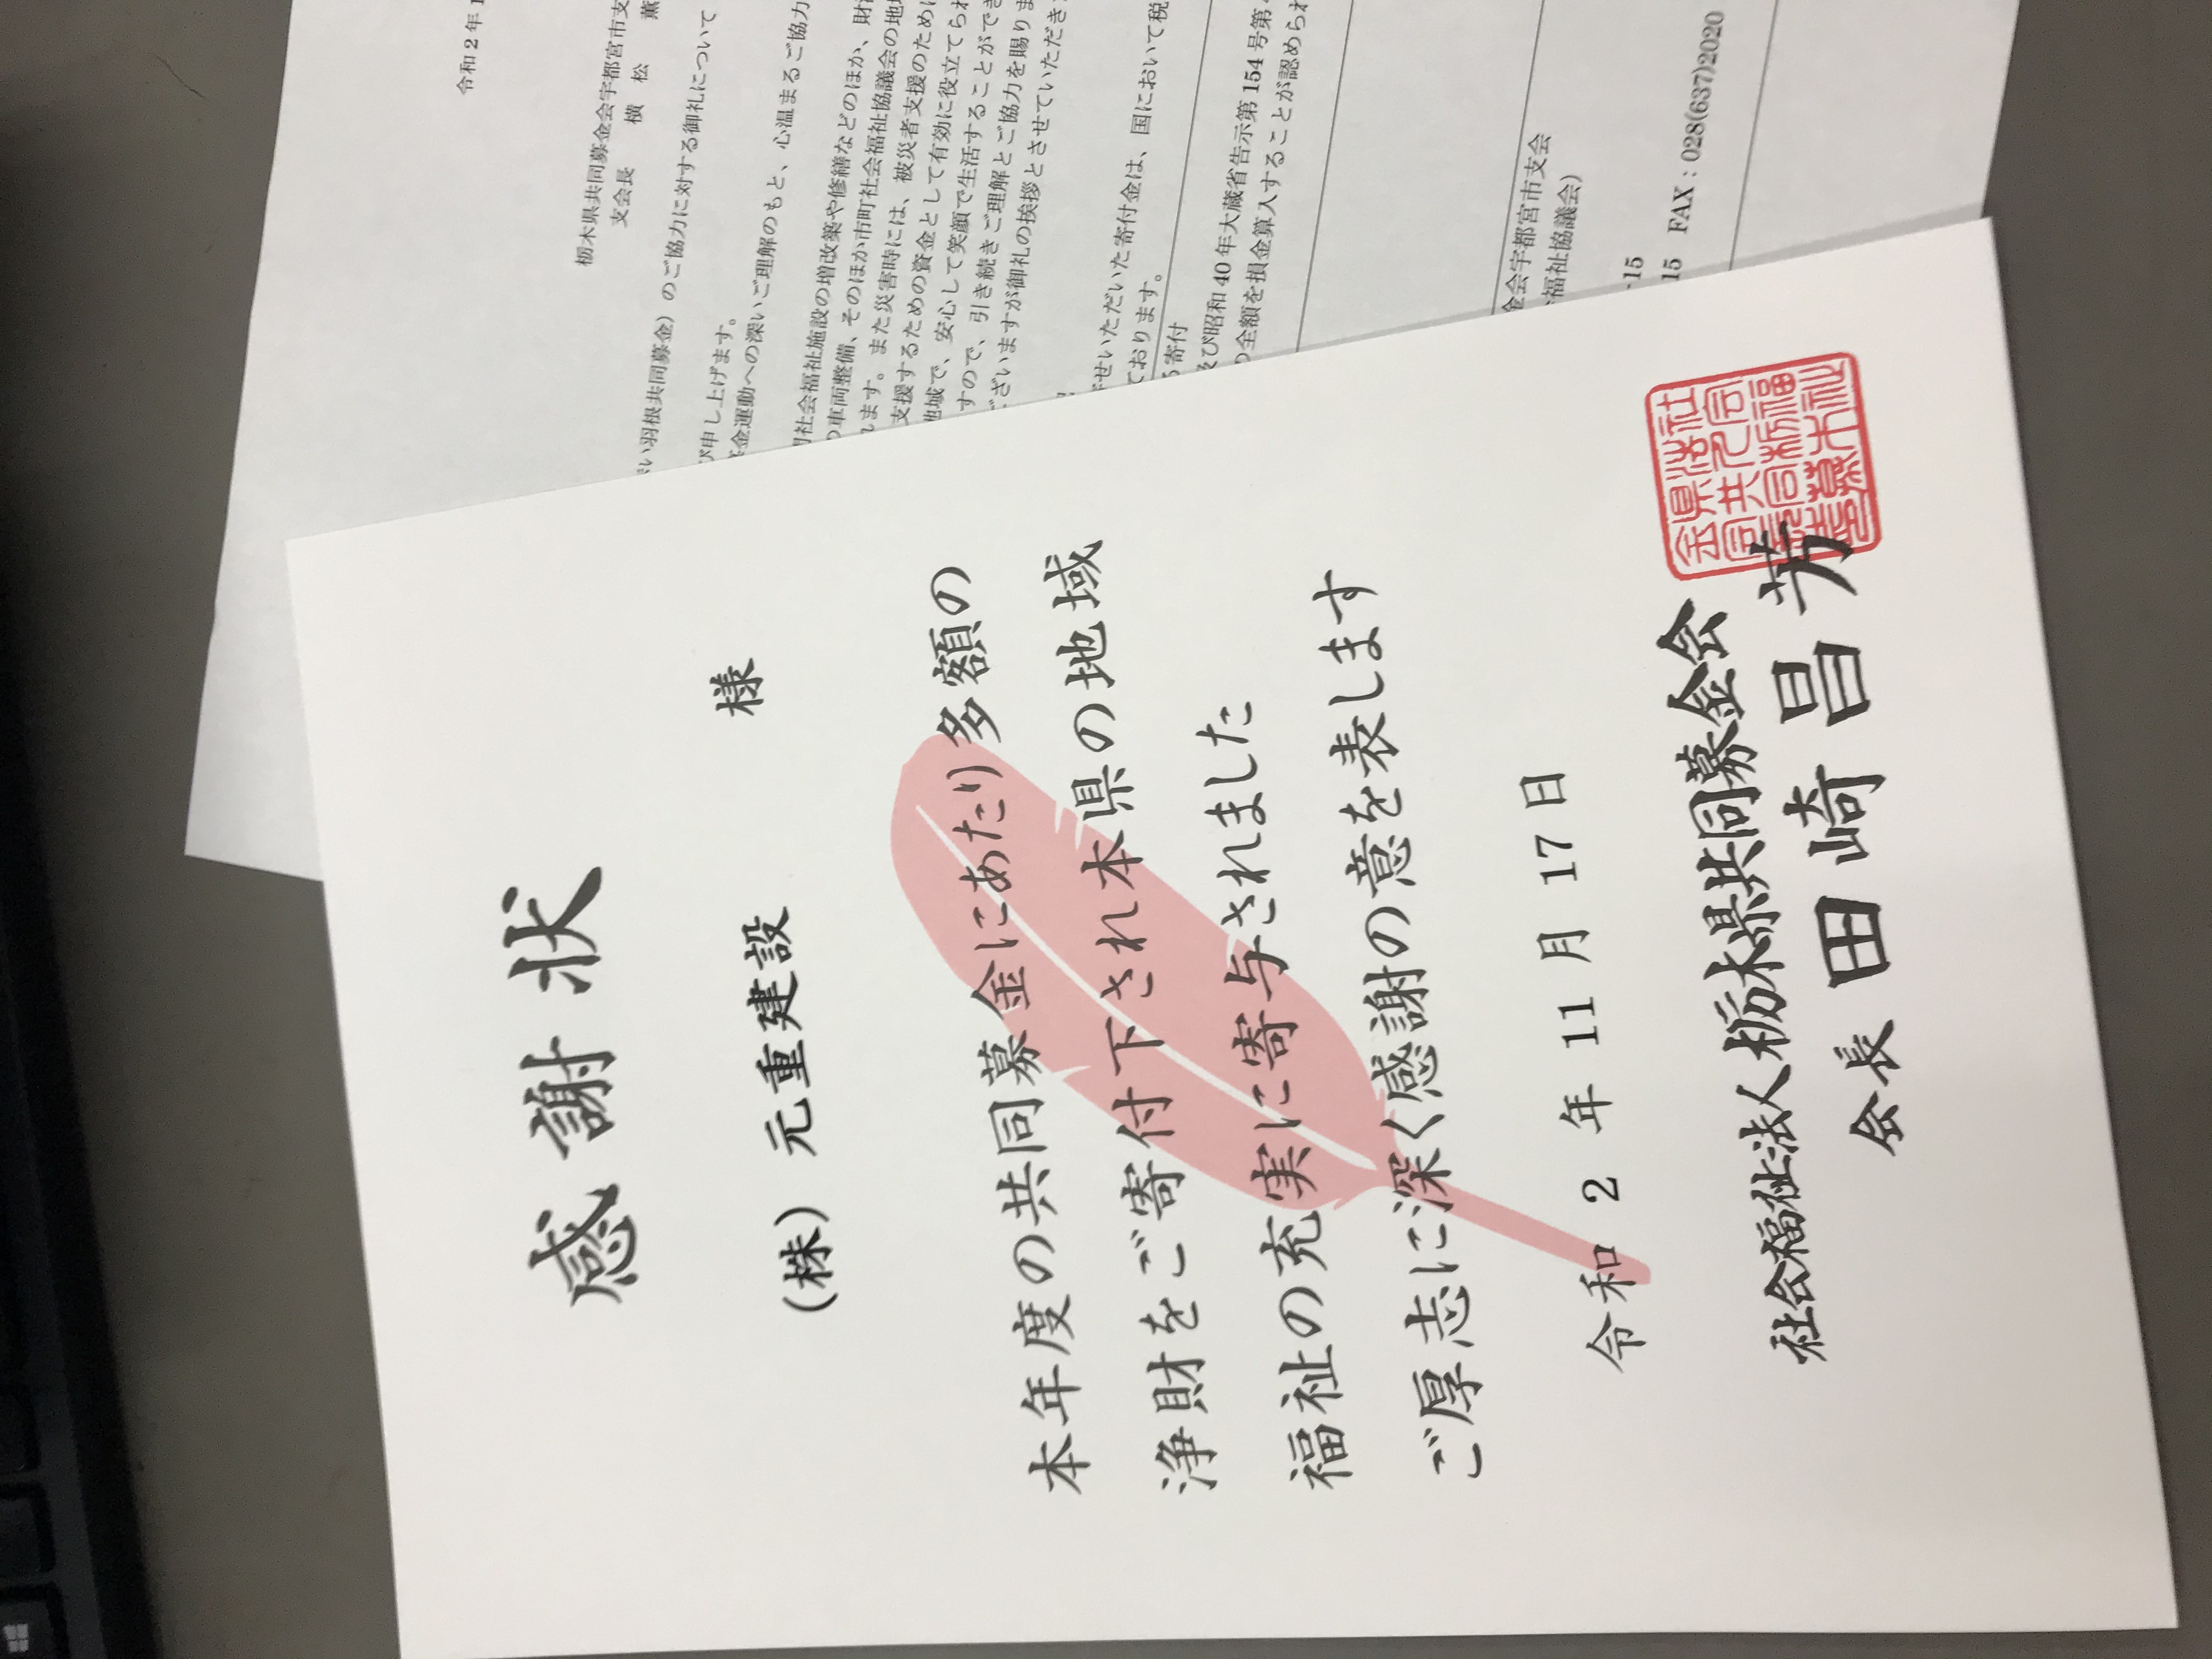 感謝状
(株) 元重建設 様
本年度の共同募金にあたり多額の
浄財をご寄付下され本県の地域
福祉の充実に寄与されました
ご厚志に深く感謝の意を表します
令和 2 年 11 月 17 日
社会福祉法人栃木県共同募金会
会長 田崎昌芳
令和2年1
栃木県共同募金会宇都宮市支
支会長 横松 薫
い羽根共同募金）のご協力に対する御礼について
び申し上げます。
金運動への深いご理解のもと、心温まるご協力
社会福祉施設の増改築や修繕などのほか、財
の車両整備、そのほか市町社会福祉協議会の地
ます。また災害時には、被災者支援のため
支援するための資金として有効に役立てられ
地域で、安心して笑顔で生活することができ
すので、引き続きご理解とご協力を賜りま
ざいますが御礼の挨拶とさせていただき
せいただいた寄付金は、国において税
ております。
寄付
及び昭和40年大蔵省告示第154号第
の全額を損金算入することが認められ
金会宇都宮市支会
福祉協議会）
15
15 FAX：028(637)2020